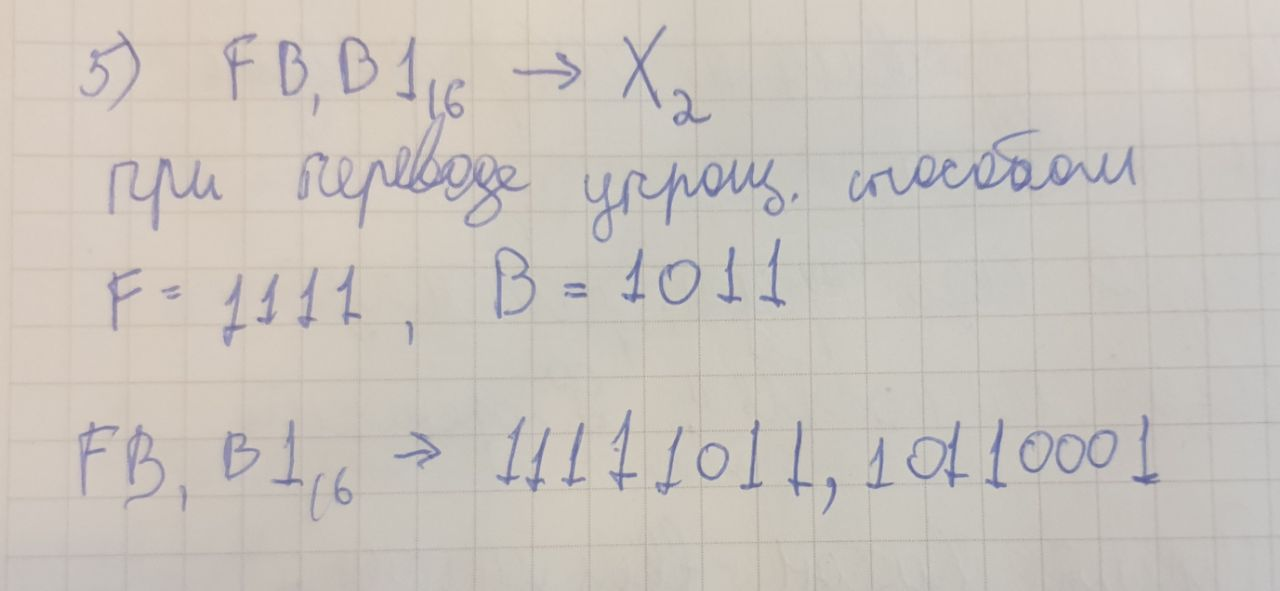 5) FB,B1₁₆ → X₂
при переводе упрощ. способом
F = 1111, B = 1011
FB,B1₁₆ → 11111011,10110001